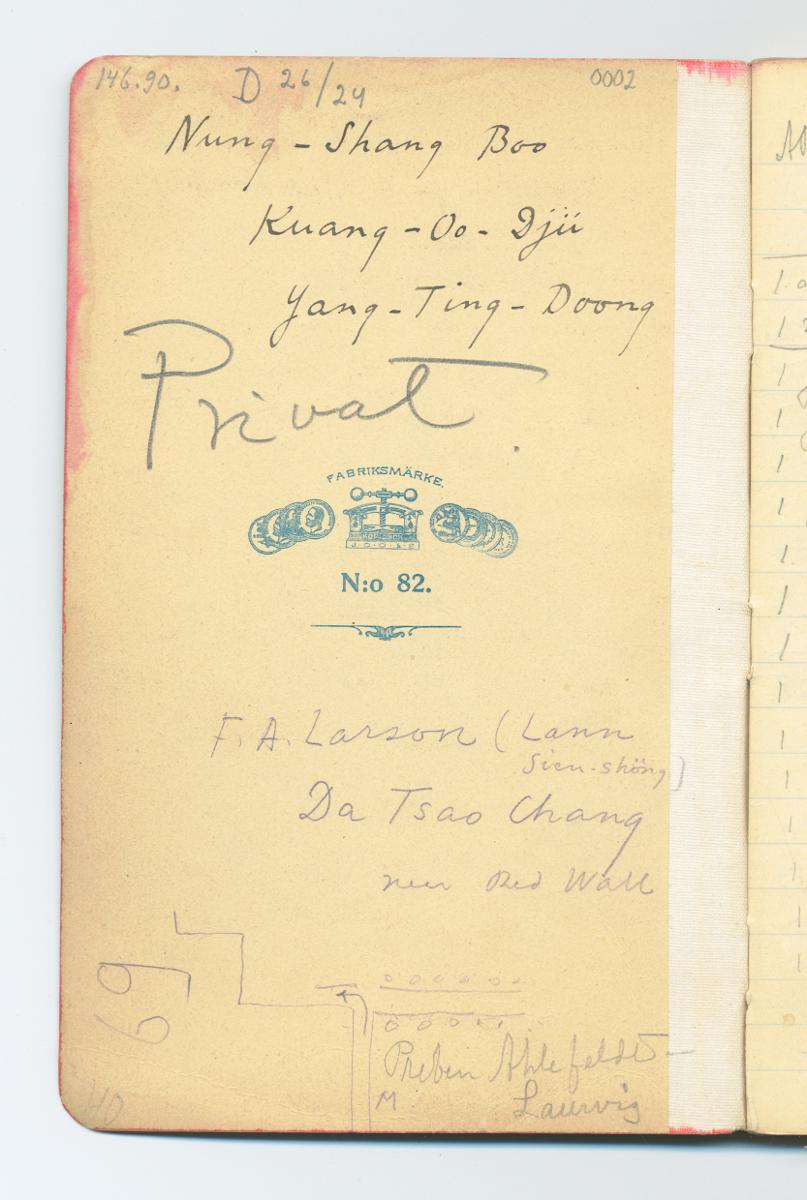 146.90. D 26/24 0002
Nung - Shang Boo
Kuang - Oo - Djü
Yang - Ting - Doong
Privat.
FABRIKSMÄRKE.
N:o 82.
F. A. Larson (Lann
Sien-shöng)
Da Tsao Chang
near Red Wall
69
Preben Ahlefeldt-
M
Laurvig
40